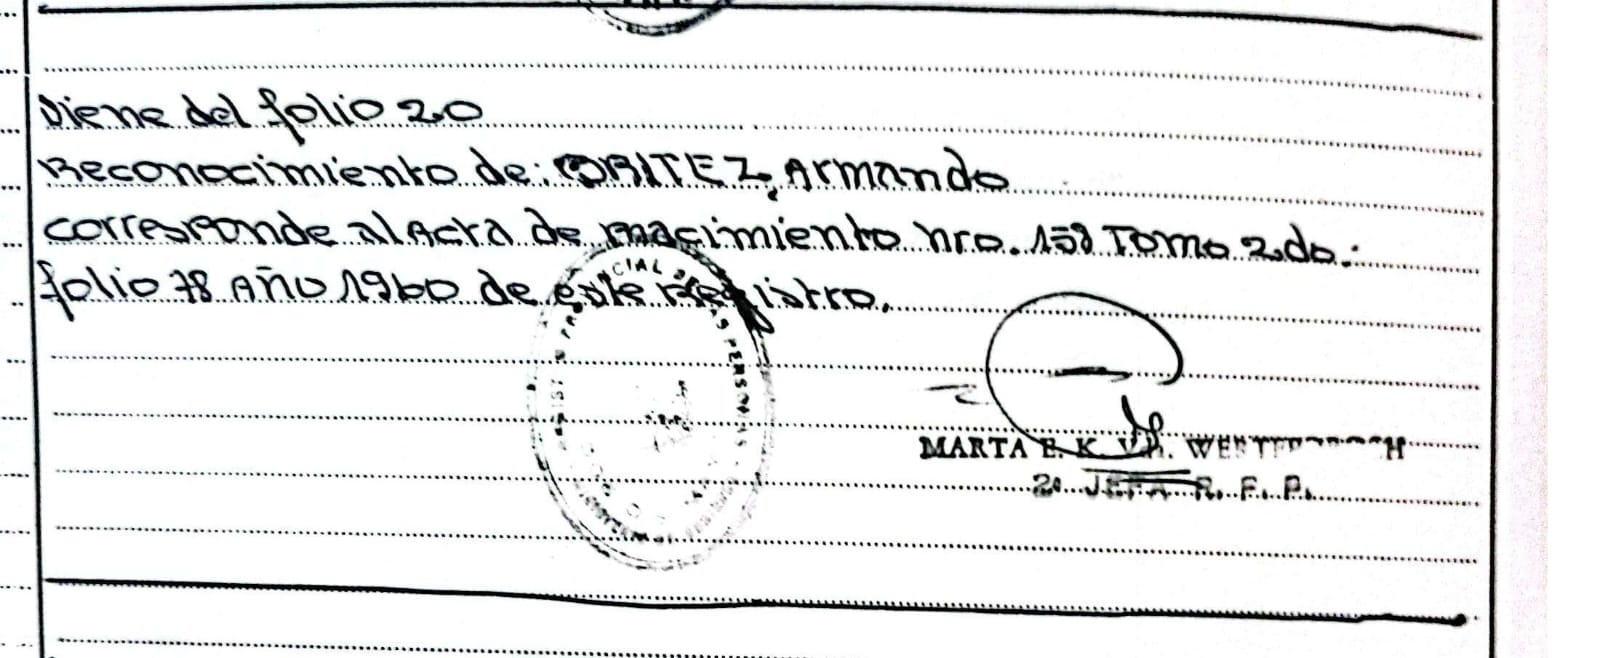 Viene del folio 20
Reconocimiento de: ORITEZ, Armando
corresponde al Acta de nacimiento nro. 158 Tomo 2.do.:
folio 78 Año 1960 de este Registro.
PROVINCIAL DE LAS PERSONAS
MARTA E. K. 
2a JEFA R. P. P.